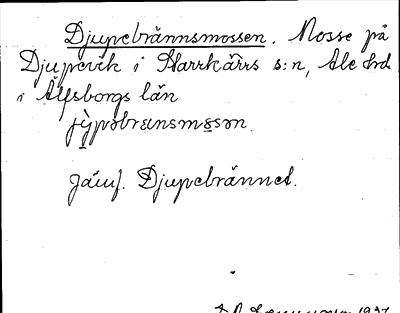 Djupebrännsmossen. Mosse på
Djupevik i Starrkärrs s:n, Ale hrd
i Älfsborgs län
jy̱pəbrɛnsmo̱sən.
Jämf. Djupebrännet.
1937